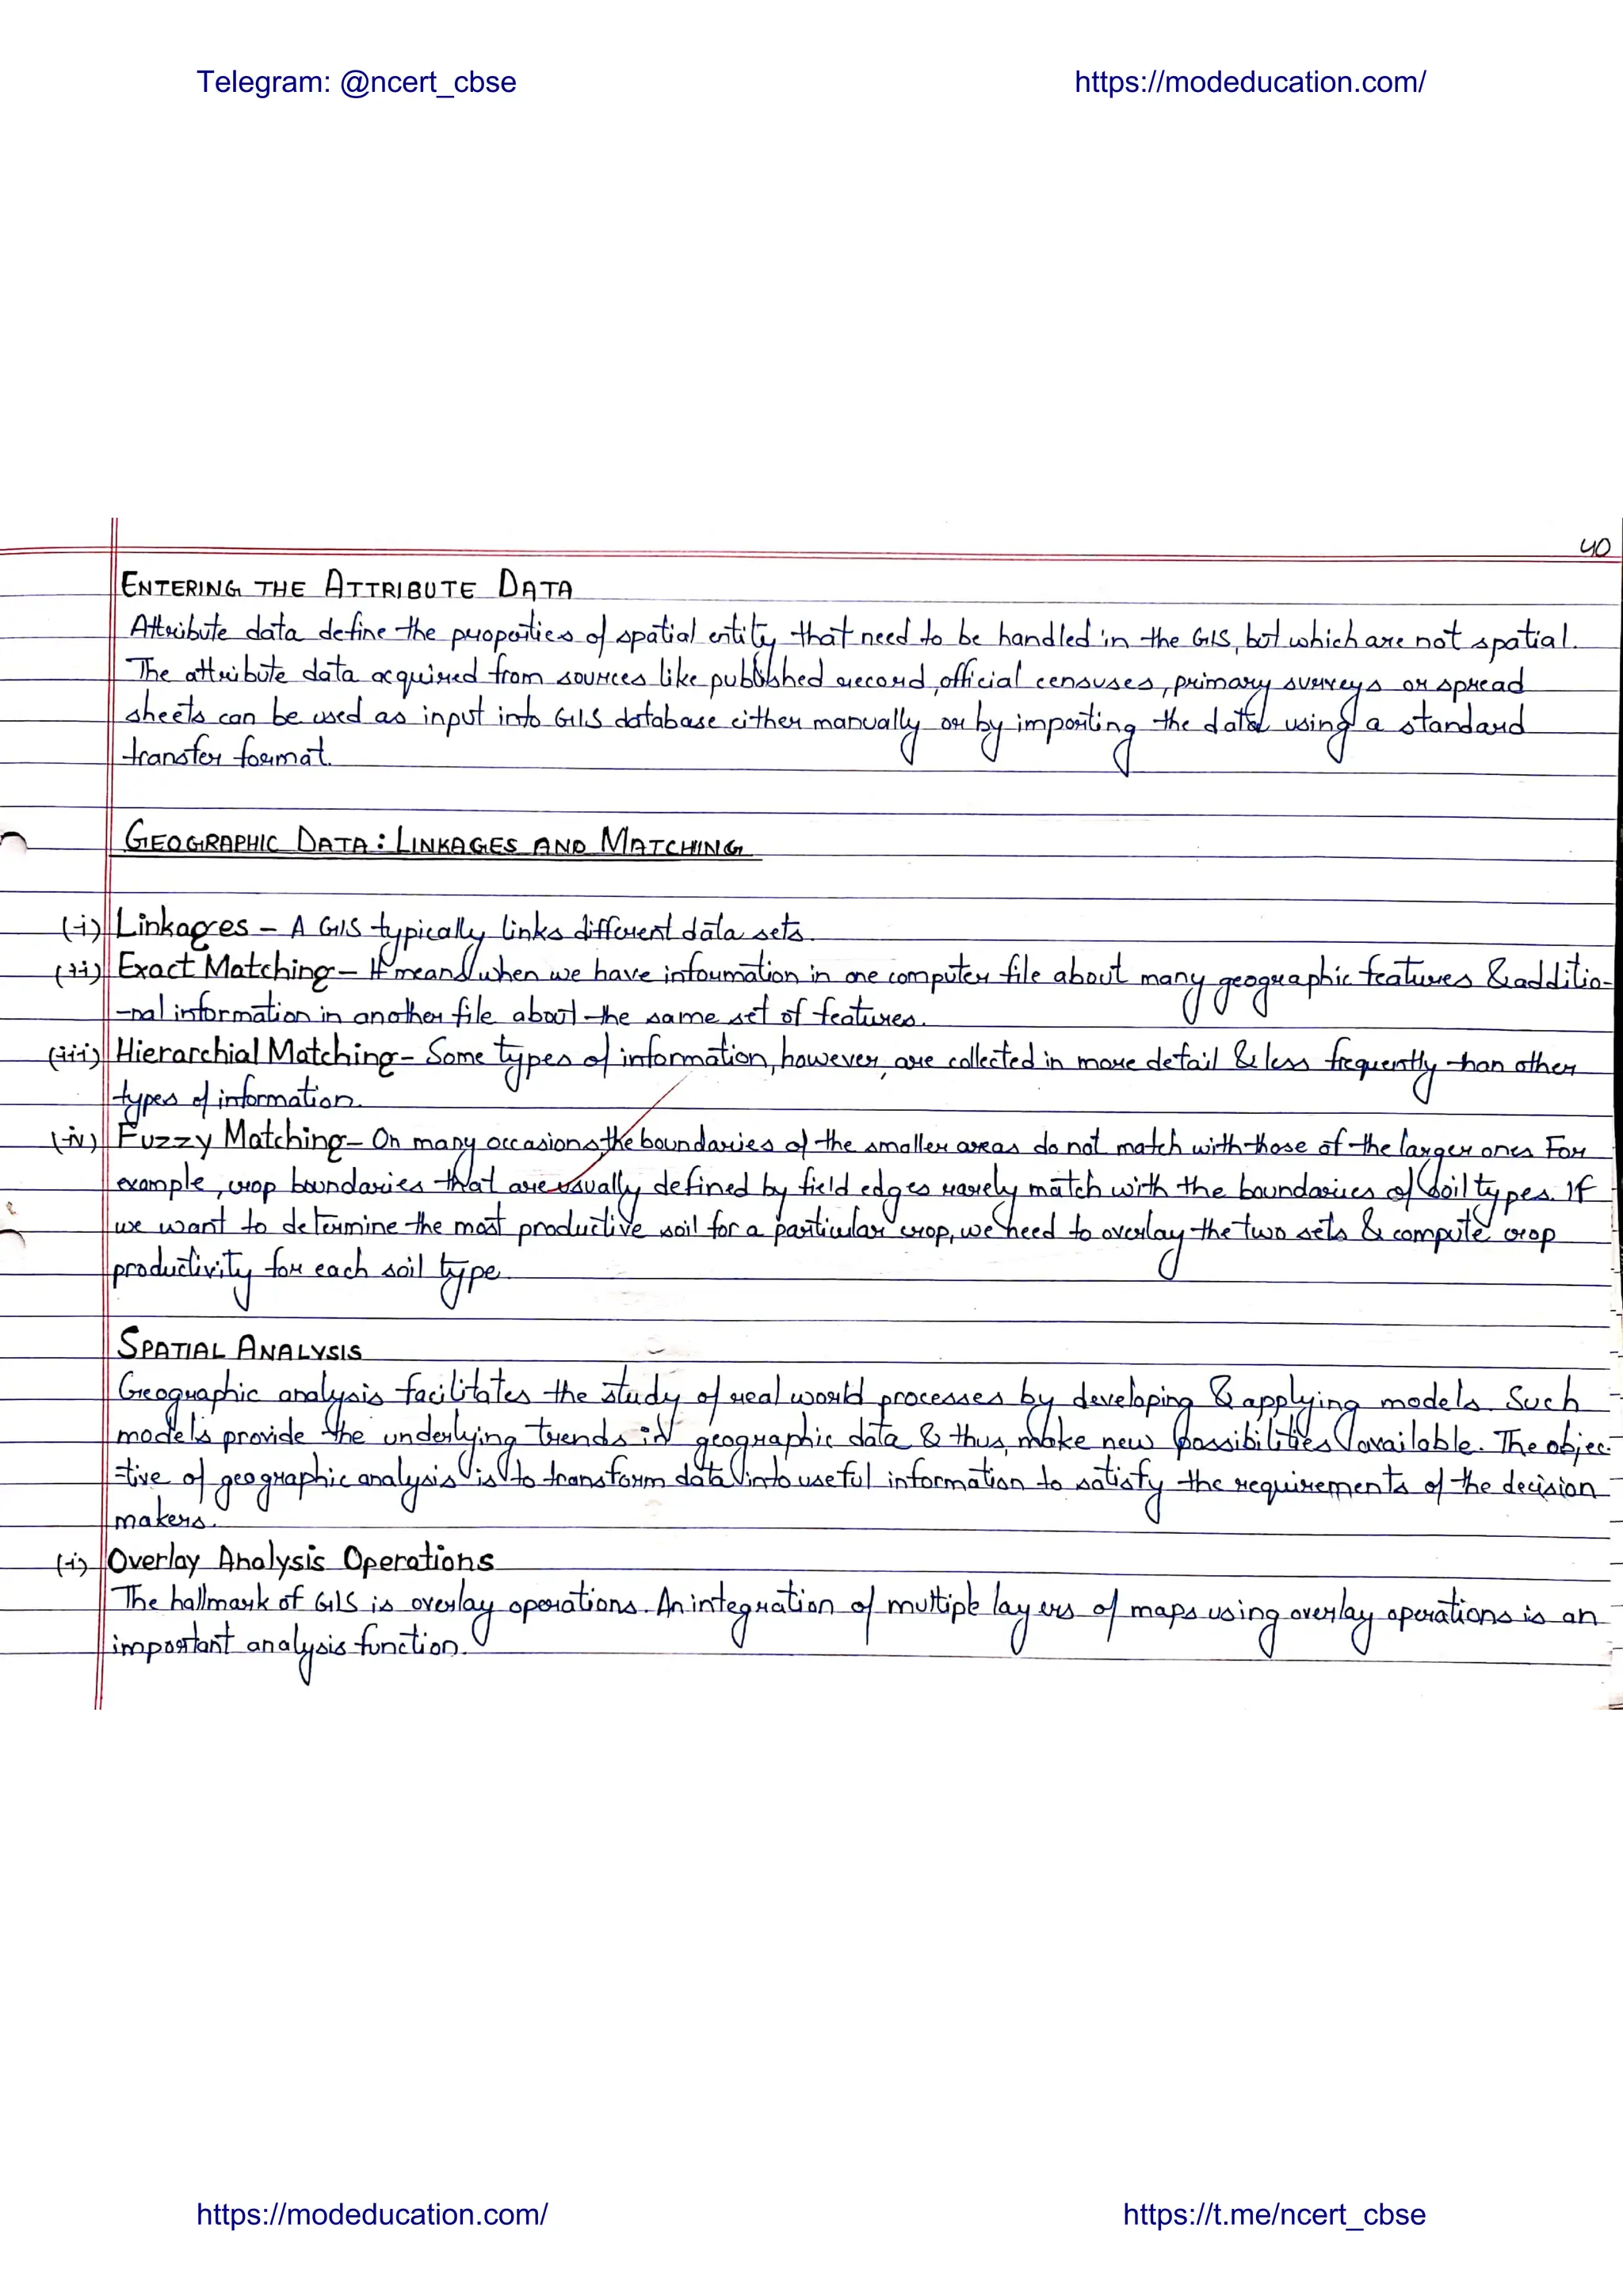 Telegram: @ncert_cbse
https://modeducation.com/
40
ENTERING THE ATTRIBUTE DATA
Attribute data define the properties of spatial entity that need to be handled in the GIS, but which are not spatial.
The attribute data acquired from sources like published record, official censuses, primary surveys or spread
sheets can be used as input into GIS database either manually or by importing the data using a standard
transfer format.
GEOGRAPHIC DATA : LINKAGES AND MATCHING
(i) Linkages - A GIS typically links different data sets.
(ii) Exact Matching - It means when we have information in one computer file about many geographic features & additio-
-nal information in another file about the same set of features.
(iii) Hierarchial Matching - Some types of information, however, are collected in more detail & less frequently than other
types of information.
(iv) Fuzzy Matching - On many occasions, the boundaries of the smaller areas do not match with those of the larger ones For
example, crop boundaries that are usually defined by field edges rarely match with the boundaries of soil types. If
we want to determine the most productive soil for a particular crop, we need to overlay the two sets & compute crop
productivity for each soil type.
SPATIAL ANALYSIS
Geographic analysis facilitates the study of real world processes by developing & applying models. Such
models provide the underlying trends in geographic data & thus, make new possibilities available. The objec-
-tive of geographic analysis is to transform data into useful information to satisfy the requirements of the decision
makers.
(i) Overlay Analysis Operations
The hallmark of GIS is overlay operations. An integration of multiple layers of maps using overlay operations is an
important analysis function.
https://modeducation.com/
https://t.me/ncert_cbse